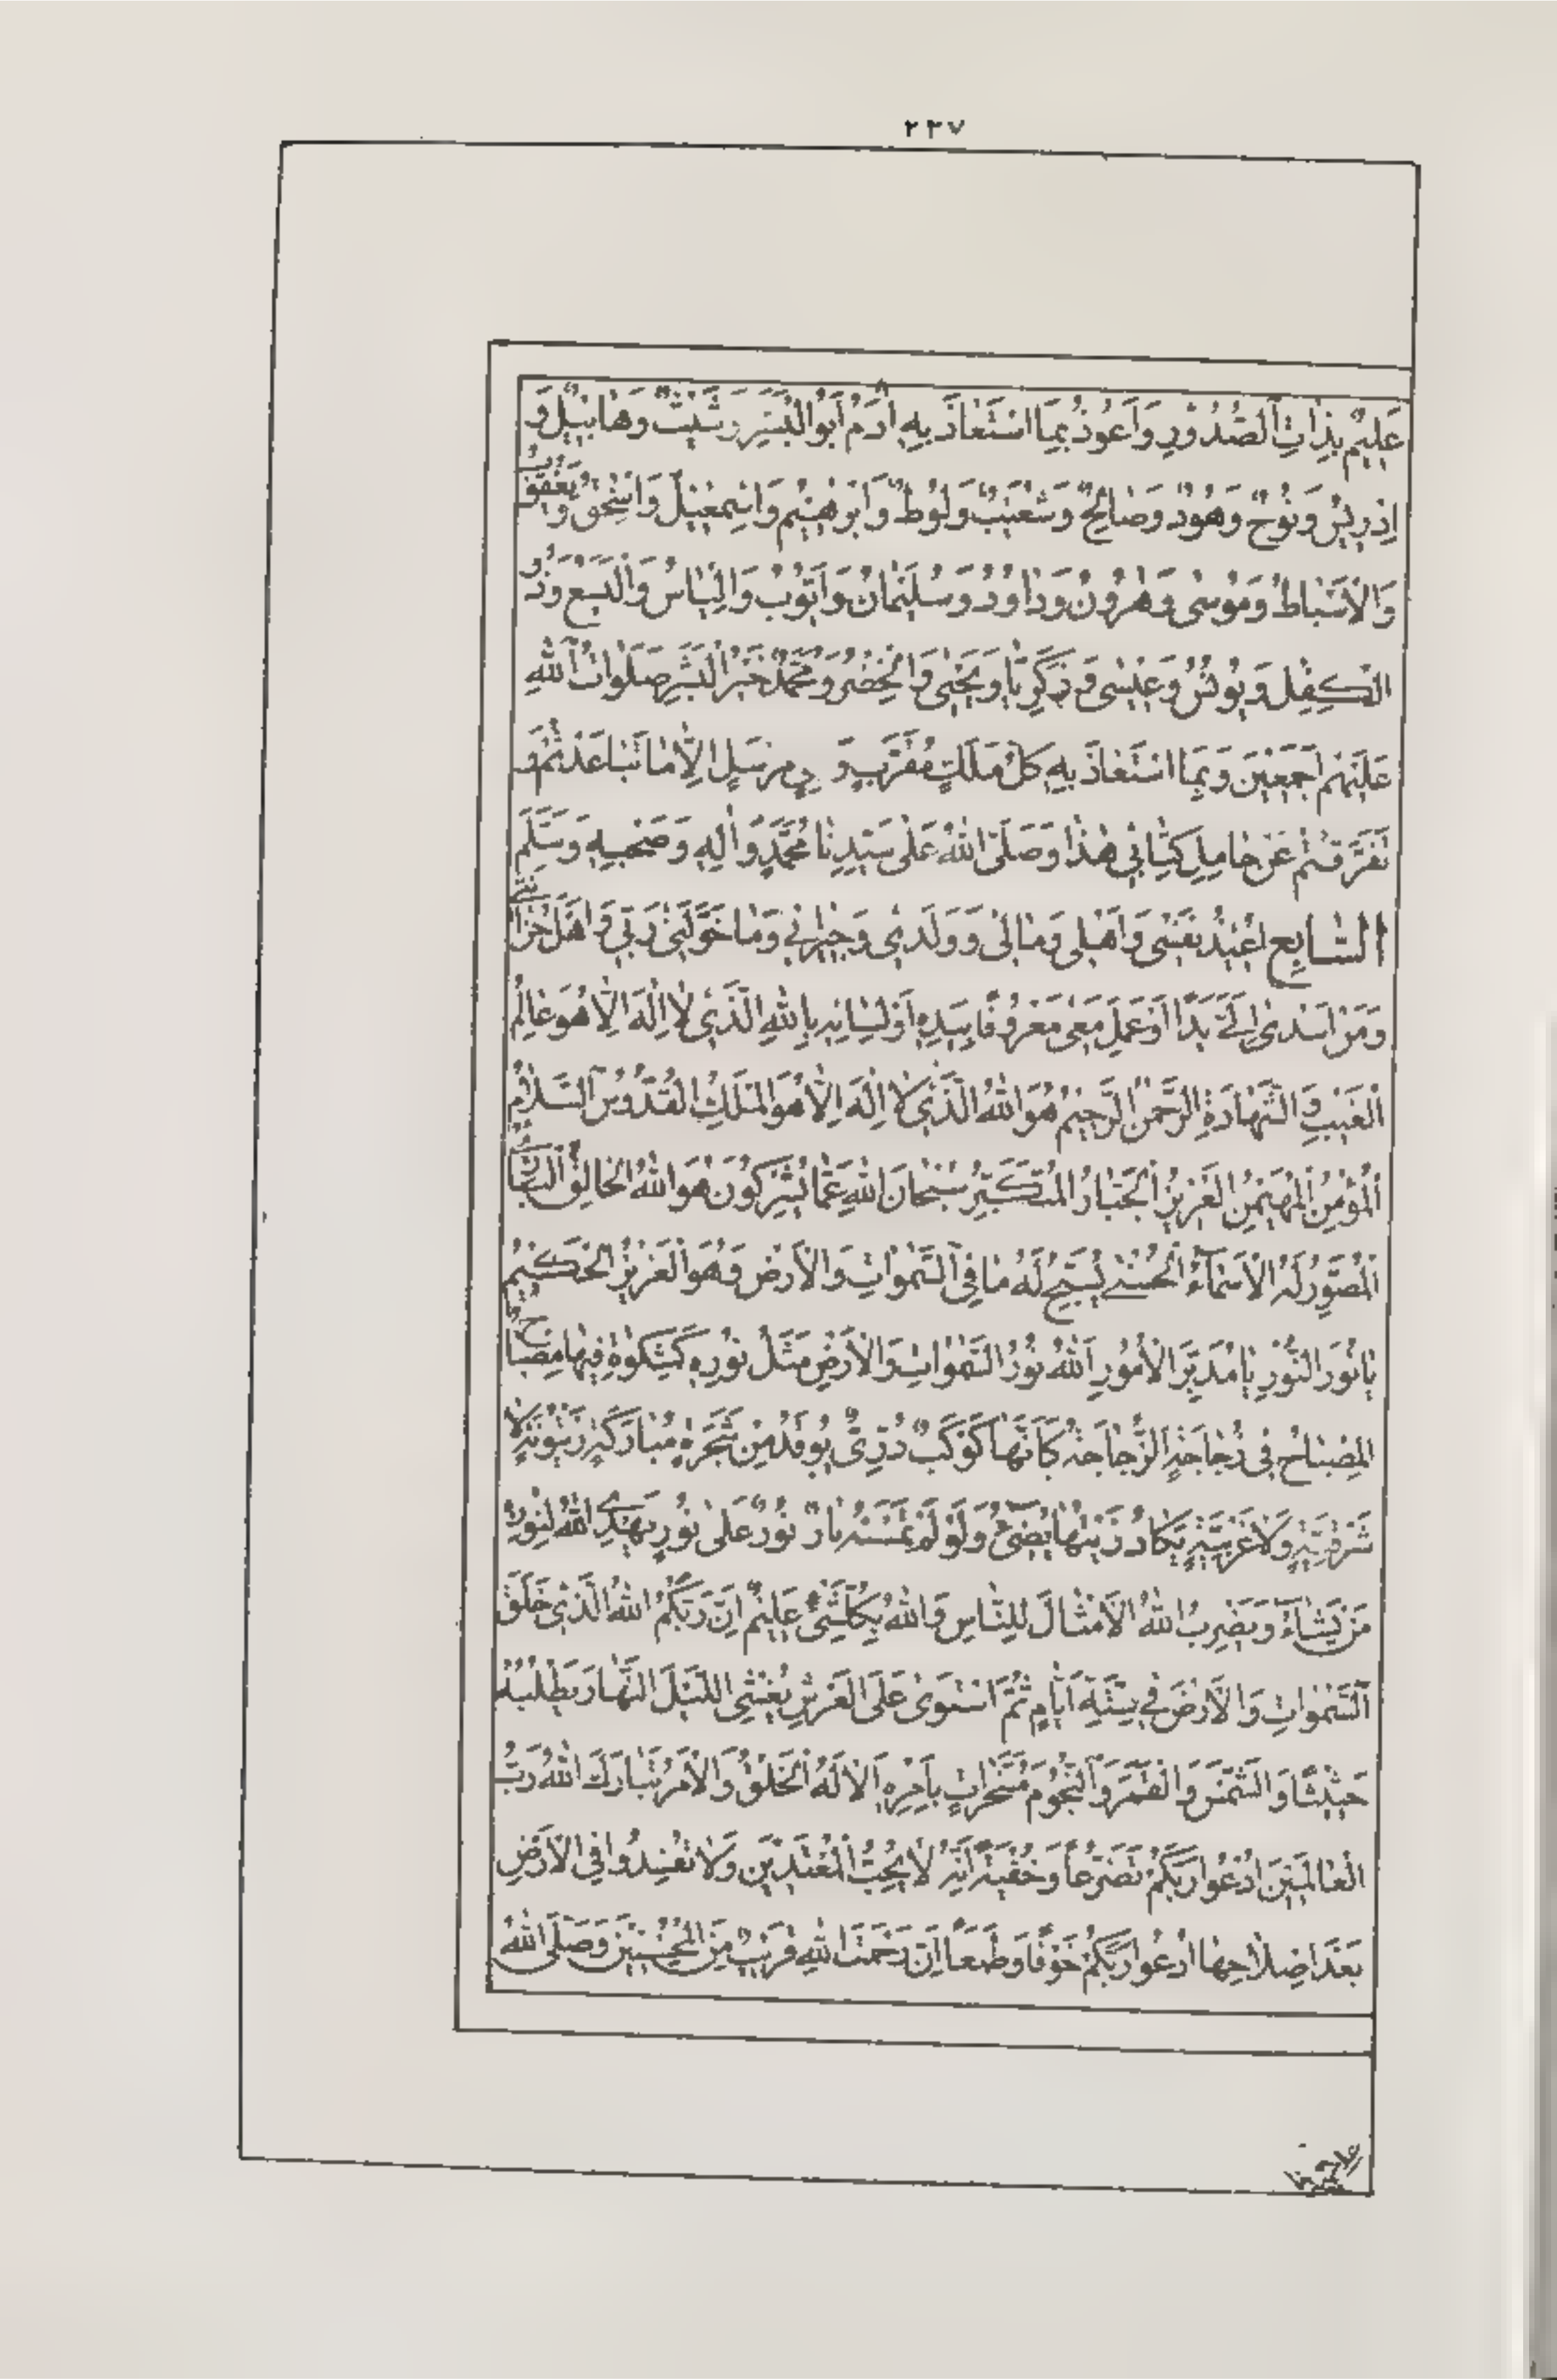 ٢٣٧
عَلِيمٌ بِذَاتِ الصُّدُورِ وَأَعُوذُ بِمَا اسْتَعَاذَ بِهِ آدَمُ أَبُو الْبَشَرِ وَشَيْثٌ وَهَابِيلُ وَ
اِدْرِيسُ وَنُوحٌ وَهُودٌ وَصَالِحٌ وَشُعَيْبٌ وَلُوطٌ وَاِبْرٰهِيمُ وَاِسْمٰعِيلُ وَاِسْحٰقُ وَيَعْقُوبُ
وَالْاَسْبَاطُ وَمُوسٰى وَهٰرُونُ وَدَاوُدُ وَسُلَيْمَانُ وَاَيُّوبُ وَاِلْيَاسُ وَالْيَسَعُ وَذُو
الْكِفْلِ وَيُونُسُ وَعِيسٰى وَزَكَرِيَّا وَيَحْيٰى وَالْخِضْرُ وَمُحَمَّدٌ خَيْرُ الْبَشَرِ صَلَوَاتُ اللهِ
عَلَيْهِمْ اَجْمَعِينَ وَبِمَا اسْتَعَاذَ بِهِ كُلُّ مَلَكٍ مُقَرَّبٍ وَ مُرْسَلٍ اِلَّا مَا تَبَاعَدْتُمْ وَ
تَفَرَّقْتُمْ عَنْ حَامِلِ كِتَابِي هٰذَا وَصَلَّى اللهُ عَلٰى سَيِّدِنَا مُحَمَّدٍ وَاٰلِهِ وَصَحْبِهِ وَسَلَّمَ
السَّابِعُ اُعِيذُ نَفْسِي وَاَهْلِي وَمَالِي وَوَلَدِي وَجِيرَانِي وَمَا خَوَّلَنِي رَبِّي وَاَهْلَ حُزَانَتِي
وَمَنْ اَسْدٰى اِلَيَّ يَدًا اَوْ عَمِلَ مَعِي مَعْرُوفًا بِيَدِهِ اَوْ لِسَانِهِ بِاللهِ الَّذِي لَا اِلٰهَ اِلَّا هُوَ عَالِمُ
الْغَيْبِ وَالشَّهَادَةِ الرَّحْمٰنُ الرَّحِيمُ هُوَ اللهُ الَّذِي لَا اِلٰهَ اِلَّا هُوَ الْمَلِكُ الْقُدُّوسُ السَّلَامُ
الْمُؤْمِنُ الْمُهَيْمِنُ الْعَزِيزُ الْجَبَّارُ الْمُتَكَبِّرُ سُبْحَانَ اللهِ عَمَّا يُشْرِكُونَ هُوَ اللهُ الْخَالِقُ الْبَارِئُ
الْمُصَوِّرُ لَهُ الْاَسْمَاءُ الْحُسْنٰى يُسَبِّحُ لَهُ مَا فِي السَّمٰوَاتِ وَالْاَرْضِ وَهُوَ الْعَزِيزُ الْحَكِيمُ
يَا نُورَ النُّورِ يَا مُدَبِّرَ الْاُمُورِ اَللهُ نُورُ السَّمٰوَاتِ وَالْاَرْضِ مَثَلُ نُورِهِ كَمِشْكٰوةٍ فِيهَا مِصْبَاحٌ
الْمِصْبَاحُ فِي زُجَاجَةٍ الزُّجَاجَةُ كَاَنَّهَا كَوْكَبٌ دُرِّيٌّ يُوقَدُ مِنْ شَجَرَةٍ مُبَارَكَةٍ زَيْتُونَةٍ لَا
شَرْقِيَّةٍ وَلَا غَرْبِيَّةٍ يَكَادُ زَيْتُهَا يُضِيءُ وَلَوْ لَمْ تَمْسَسْهُ نَارٌ نُورٌ عَلٰى نُورٍ يَهْدِي اللهُ لِنُورِهِ
مَنْ يَشَاءُ وَيَضْرِبُ اللهُ الْاَمْثَالَ لِلنَّاسِ وَاللهُ بِكُلِّ شَيْءٍ عَلِيمٌ اِنَّ رَبَّكُمُ اللهُ الَّذِي خَلَقَ
السَّمٰوَاتِ وَالْاَرْضَ فِي سِتَّةِ اَيَّامٍ ثُمَّ اسْتَوٰى عَلَى الْعَرْشِ يُغْشِي اللَّيْلَ النَّهَارَ يَطْلُبُهُ
حَثِيثًا وَالشَّمْسَ وَالْقَمَرَ وَالنُّجُومَ مُسَخَّرَاتٍ بِاَمْرِهِ اَلَا لَهُ الْخَلْقُ وَالْاَمْرُ تَبَارَكَ اللهُ رَبُّ
الْعَالَمِينَ اُدْعُوا رَبَّكُمْ تَضَرُّعًا وَخُفْيَةً اِنَّهُ لَا يُحِبُّ الْمُعْتَدِينَ وَلَا تُفْسِدُوا فِي الْاَرْضِ
بَعْدَ اِصْلَاحِهَا اُدْعُوا رَبَّكُمْ خَوْفًا وَطَمَعًا اِنَّ رَحْمَتَ اللهِ قَرِيبٌ مِنَ الْمُحْسِنِينَ وَصَلَّى اللهُ